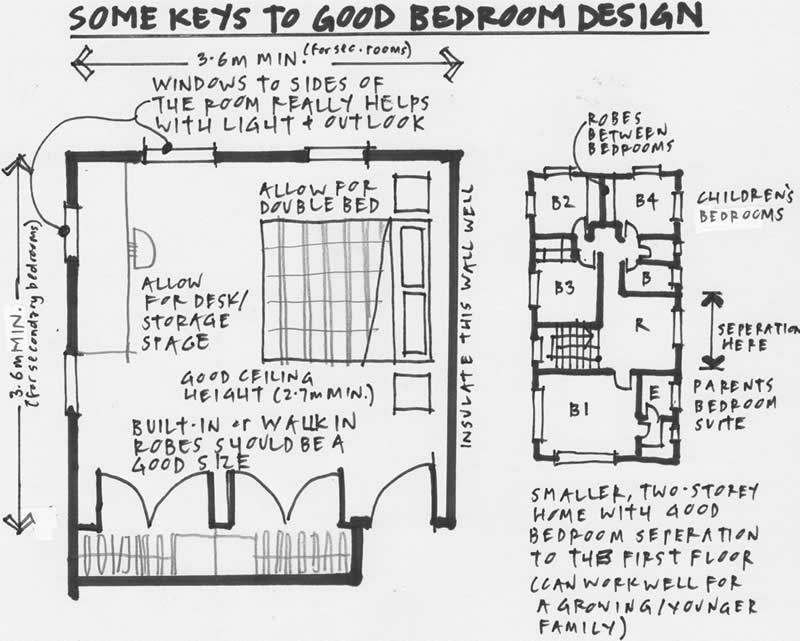 SOME KEYS TO GOOD BEDROOM DESIGN
3.6m MIN. (for sec. rooms)
WINDOWS TO SIDES OF
THE ROOM REALLY HELPS
WITH LIGHT + OUTLOOK
3.6m MIN.
(for secondary bedrooms)
ALLOW FOR
DOUBLE BED
ALLOW
FOR DESK/
STORAGE
SPACE
INSULATE THIS WALL WELL
GOOD CEILING
HEIGHT (2.7m MIN.)
BUILT-IN or WALK IN
ROBES SHOULD BE A
GOOD SIZE
ROBES
BETWEEN
BEDROOMS
B2
B4
CHILDREN'S
BEDROOMS
B3
B
R
SEPERATION
HERE
B1
E
PARENTS
BEDROOM
SUITE
SMALLER, TWO-STOREY
HOME WITH GOOD
BEDROOM SEPERATION
TO THE FIRST FLOOR
(CAN WORK WELL FOR
A GROWING/YOUNGER
FAMILY)